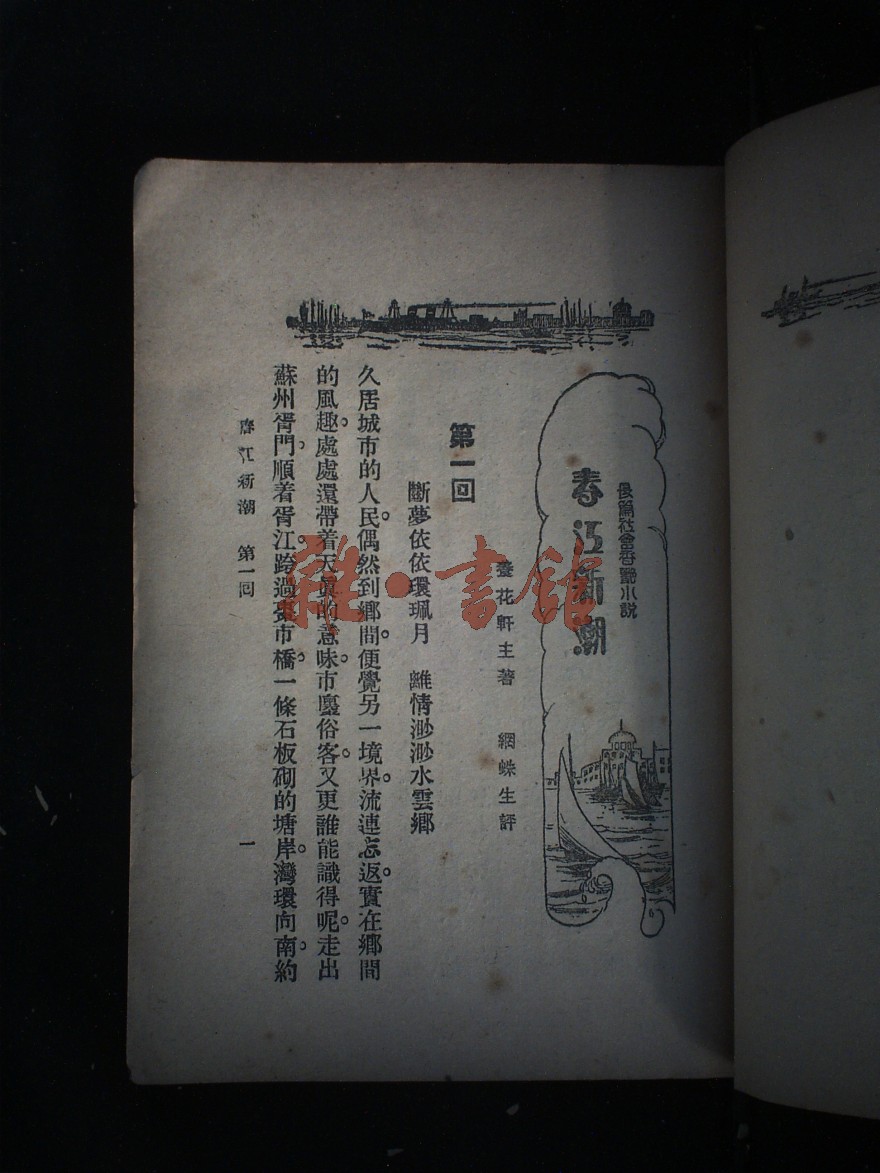 長篇社會香艷小說
春江新潮
養花軒主著　網蛛生評
第一回
斷夢依依環珮月　離情渺渺水雲鄉
久居城市的人民。偶然到鄉間。便覺另一境界。流連忘返。實在鄉間
的風趣。處處還帶着天眞的意味。市廛俗客。又更誰能識得呢。走出
蘇州胥門。順着胥江。跨過棗市橋。一條石板砌的塘岸。灣環向南。約
春江新潮　第一回
一
雜·書館